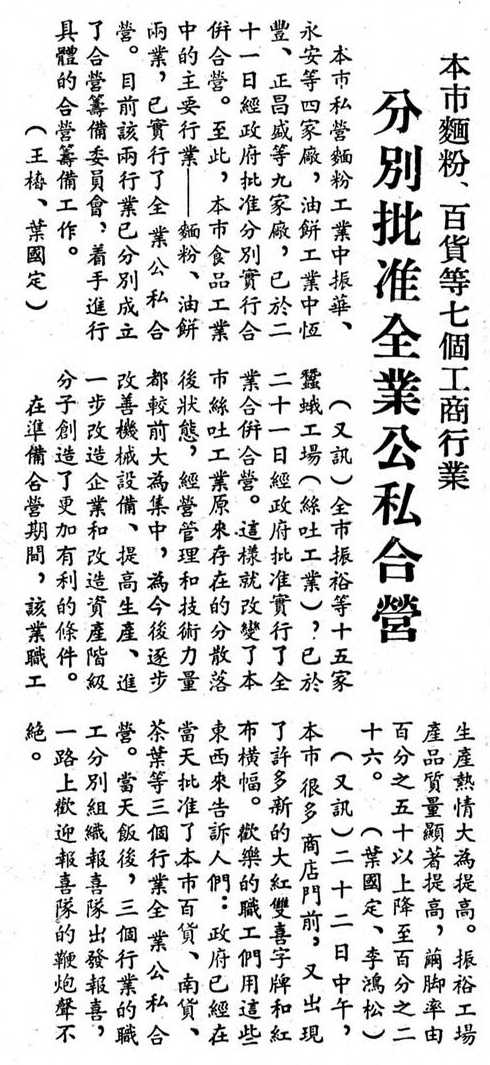 本市麵粉、百貨等七個工商行業
分別批准全業公私合營
本市私營麵粉工業中振華、
永安等四家廠，油餅工業中恆
豐、正昌盛等九家廠，已於二
十一日經政府批准分別實行合
併合營。至此，本市食品工業
中的主要行業——麵粉、油餅
兩業，已實行了全業公私合
營。目前該兩行業已分別成立
了合營籌備委員會，着手進行
具體的合營籌備工作。
（王椿、葉國定）
（又訊）全市振裕等十五家
蠶蛾工場（絲吐工業），已於
二十一日經政府批准實行了全
業合併合營。這樣就改變了本
市絲吐工業原來存在的分散落
後狀態，經營管理和技術力量
都較前大為集中，為今後逐步
改善機械設備、提高生產、進
一步改造企業和改造資產階級
分子創造了更加有利的條件。
在準備合營期間，該業職工
生產熱情大為提高。振裕工場
產品質量顯著提高，繭脚率由
百分之五十以上降至百分之二
十六。（葉國定、李鴻松）
（又訊）二十二日中午，
本市很多商店門前，又出現
了許多新的大紅雙喜字牌和紅
布橫幅。歡樂的職工們用這些
東西來告訴人們：政府已經在
當天批准了本市百貨、南貨、
茶葉等三個行業全業公私合
營。當天飯後，三個行業的職
工分別組織報喜隊出發報喜，
一路上歡迎報喜隊的鞭炮聲不
絕。